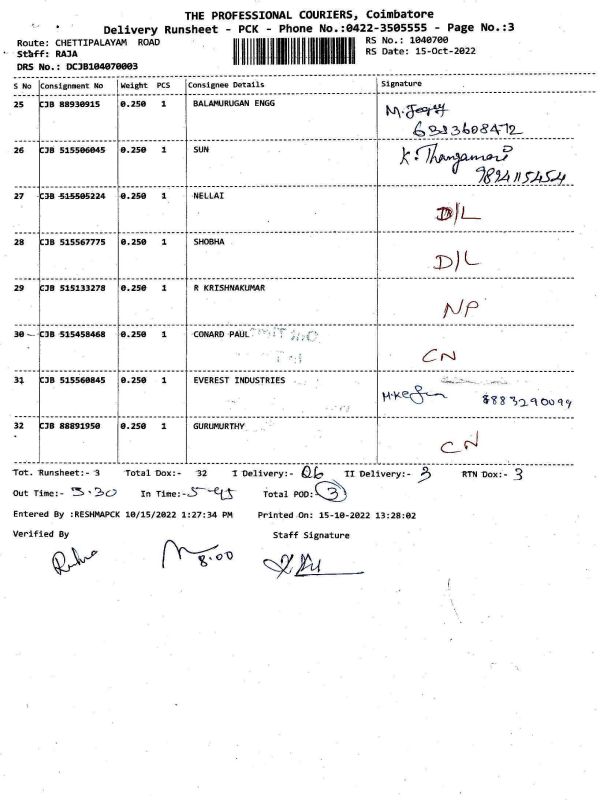 THE PROFESSIONAL COURIERS, Coimbatore
Delivery Runsheet - PCK - Phone No.:0422-3505555 - Page No.:3
Route: CHETTIPALAYAM ROAD RS No.: 1040700
Staff: RAJA RS Date: 15-Oct-2022
DRS No.: DCJB104070003
S No Consignment No Weight PCS Consignee Details Signature
25 CJB 88930915 0.250 1 BALAMURUGAN ENGG
6383608472
26 CJB 515506045 0.250 1 SUN K. Thangamani
9894115454
27 CJB 515505224 0.250 1 NELLAI D/L
28 CJB 515567775 0.250 1 SHOBHA D/L
29 CJB 515133278 0.250 1 R KRISHNAKUMAR NP
30 CJB 515458468 0.250 1 CONARD PAUL CN
31 CJB 515560845 0.250 1 EVEREST INDUSTRIES 8883290099
32 CJB 88891950 0.250 1 GURUMURTHY CN
Tot. Runsheet:- 3 Total Dox:- 32 I Delivery:- 26 II Delivery:- 3 RTN Dox:- 3
Out Time:- 3.30 In Time:- 5-45 Total POD: 3
Entered By :RESHMAPCK 10/15/2022 1:27:34 PM Printed On: 15-10-2022 13:28:02
Verified By Staff Signature
8.00